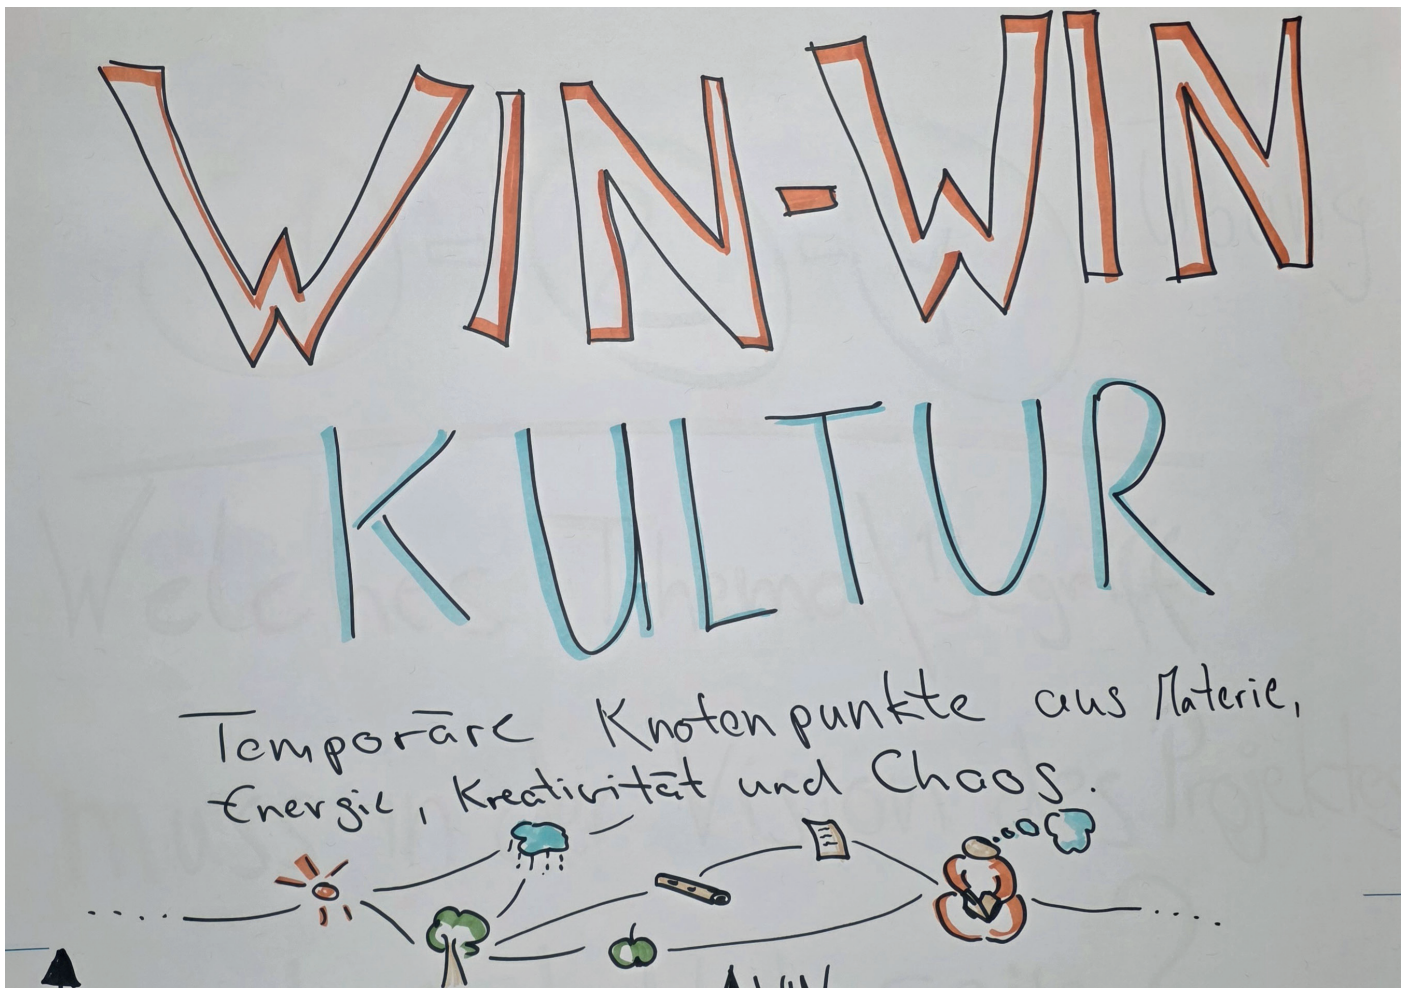 WIN-WIN
KULTUR
Temporäre Knotenpunkte aus Materie,
Energie, Kreativität und Chaos.